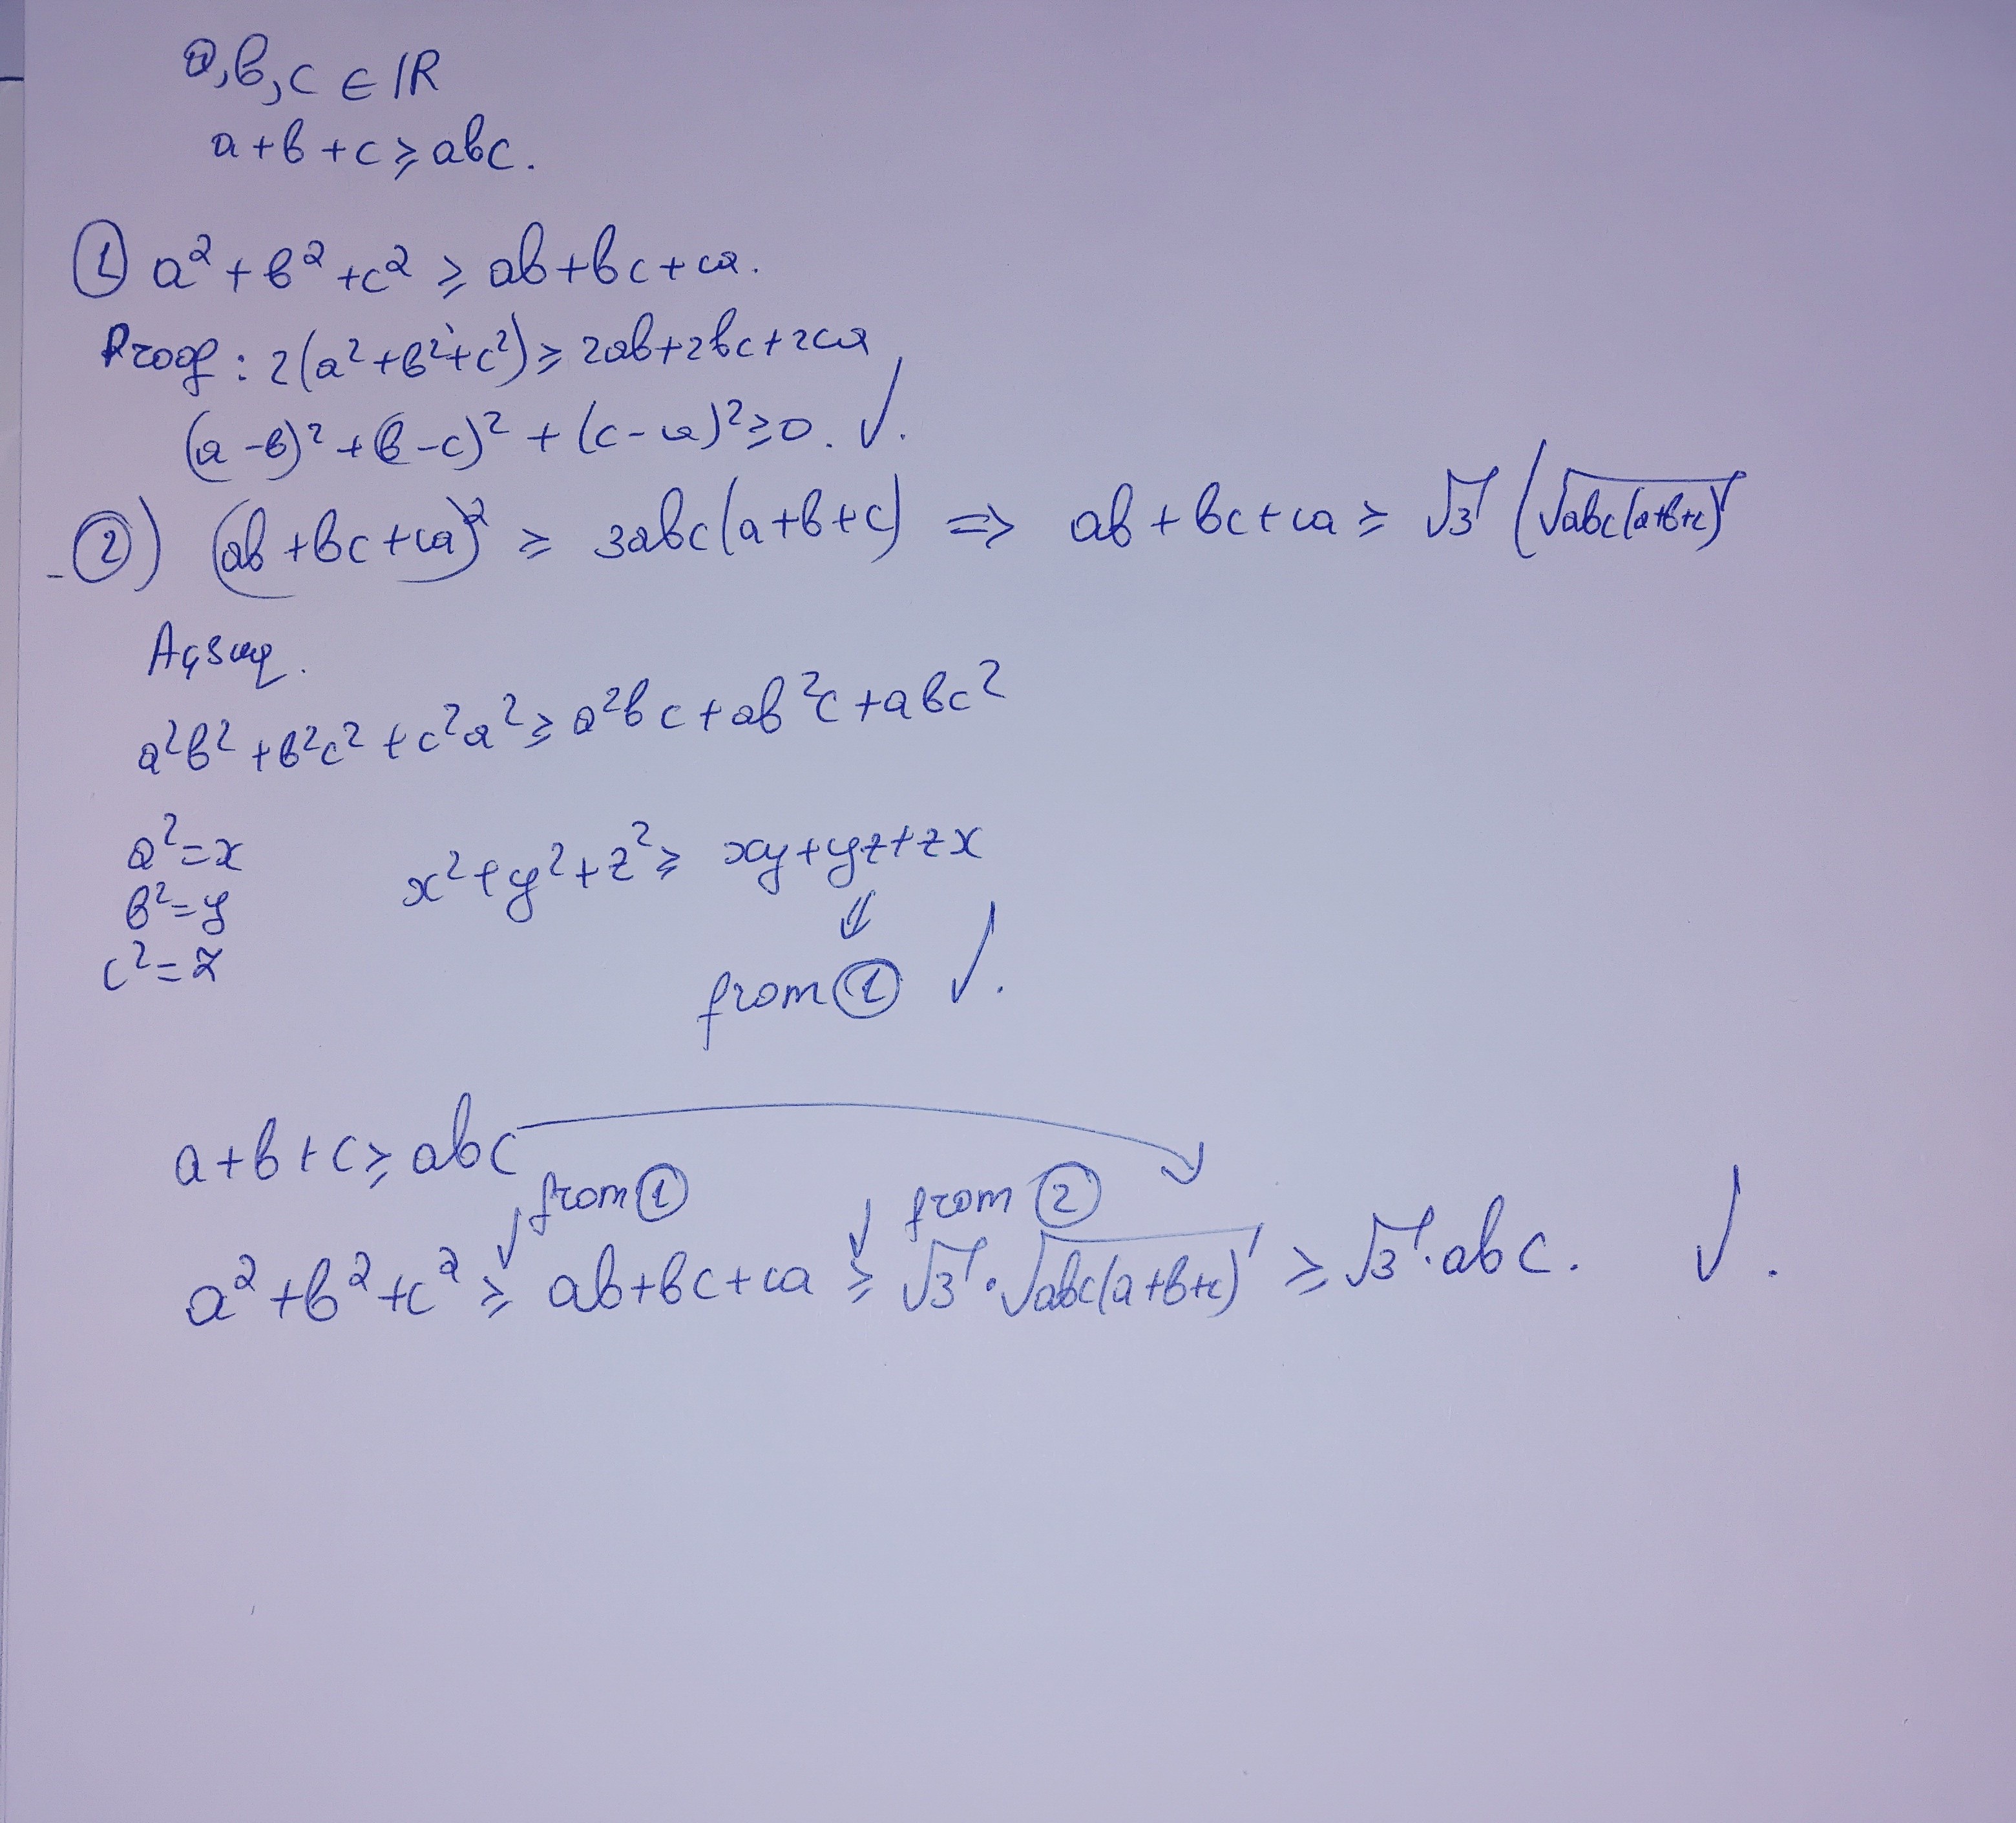 a, b, c ∈ IR
a+b+c ≥ abc.
① a² + b² + c² ≥ ab+bc+ca.
Proof : 2(a²+b²+c²) ≥ 2ab+2bc+2ca
(a-b)² + (b-c)² + (c-a)² ≥ 0. ✓.
②) (ab+bc+ca)² ≥ 3abc(a+b+c) ⇒ ab+bc+ca ≥ √3 (√abc(a+b+c)
a²b² + b²c² + c²a² ≥ a²bc + ab²c + abc²
a²=x
b²=y
c²=z
x²+y²+z² ≥ xy+yz+zx
⇓
from ① ✓.
a+b+c ≥ abc
from ① from ②
a²+b²+c² ≥ ab+bc+ca ≥ √3 · √abc(a+b+c) ≥ √3 · abc. ✓.